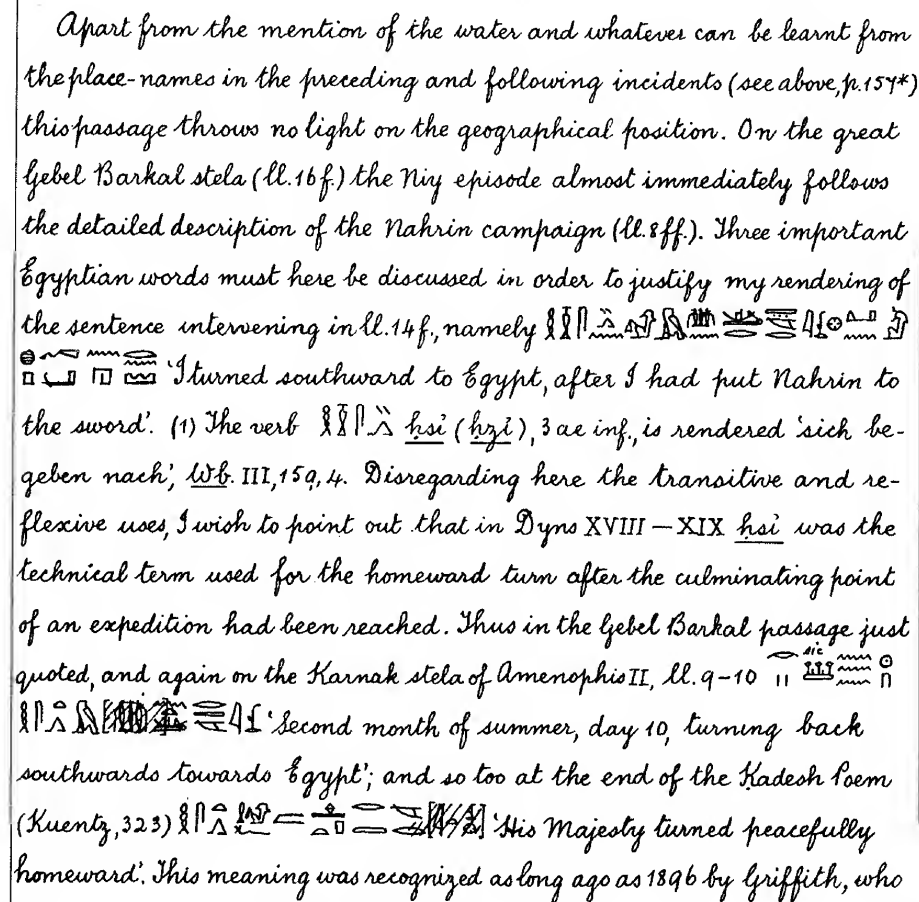 Apart from the mention of the water and whatever can be learnt from
the place-names in the preceding and following incidents (see above, p. 157*)
this passage throws no light on the geographical position. On the great
Gebel Barkal stela (ll. 16 f.) the Niy episode almost immediately follows
the detailed description of the Nahrin campaign (ll. 8 ff.). Three important
Egyptian words must here be discussed in order to justify my rendering of
the sentence intervening in ll. 14 f., namely
'I turned southward to Egypt, after I had put Nahrin to
the sword'. (1) The verb ḥsỉ (ḥzỉ), 3 ae inf., is rendered 'sich be-
geben nach', Wb. III, 159, 4. Disregarding here the transitive and re-
flexive uses, I wish to point out that in Dyns XVIII – XIX ḥsỉ was the
technical term used for the homeward turn after the culminating point
of an expedition had been reached. Thus in the Gebel Barkal passage just
quoted, and again on the Karnak stela of Amenophis II, ll. 9-10 sic
'Second month of summer, day 10, turning back
southwards towards Egypt'; and so too at the end of the Kadesh Poem
(Kuentz, 323) 'His Majesty turned peacefully
homeward'. This meaning was recognized as long ago as 1896 by Griffith, who